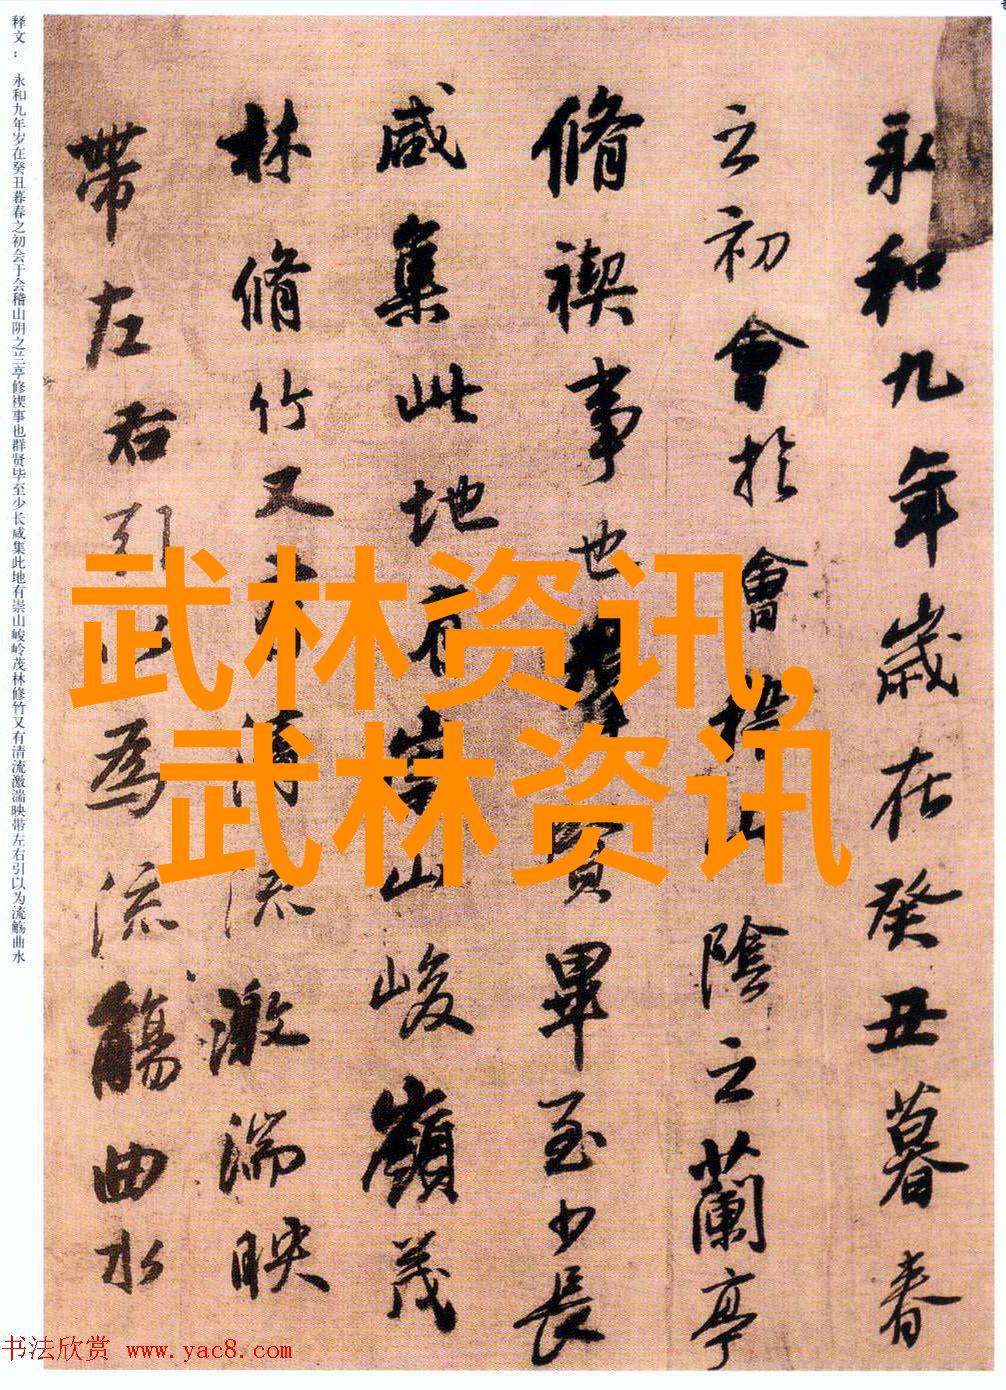 永和九年歲在癸丑暮春
之初會於會稽山陰之蘭亭
脩禊事也羣賢畢至少長
咸集此地有崇山峻嶺茂
林脩竹又有清流激湍映
帶左右引以為流觴曲水
释文：永和九年岁在癸丑暮春之初会于会稽山阴之兰亭修禊事也群贤毕至少长咸集此地有崇山峻岭茂林修竹又有清流激湍映带左右引以为流觞曲水
武林资讯,
武林资讯
书法欣赏 www.yac8.com